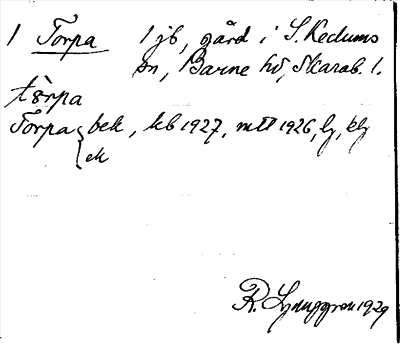 1 Torpa 1 jb, gård i S. Kedums
sn, Barne hd, Skarab. l.
tòrpa
Torpa { bek, kb 1927, mtl 1926, lj, klj
ek
R. Ljunggren 1929